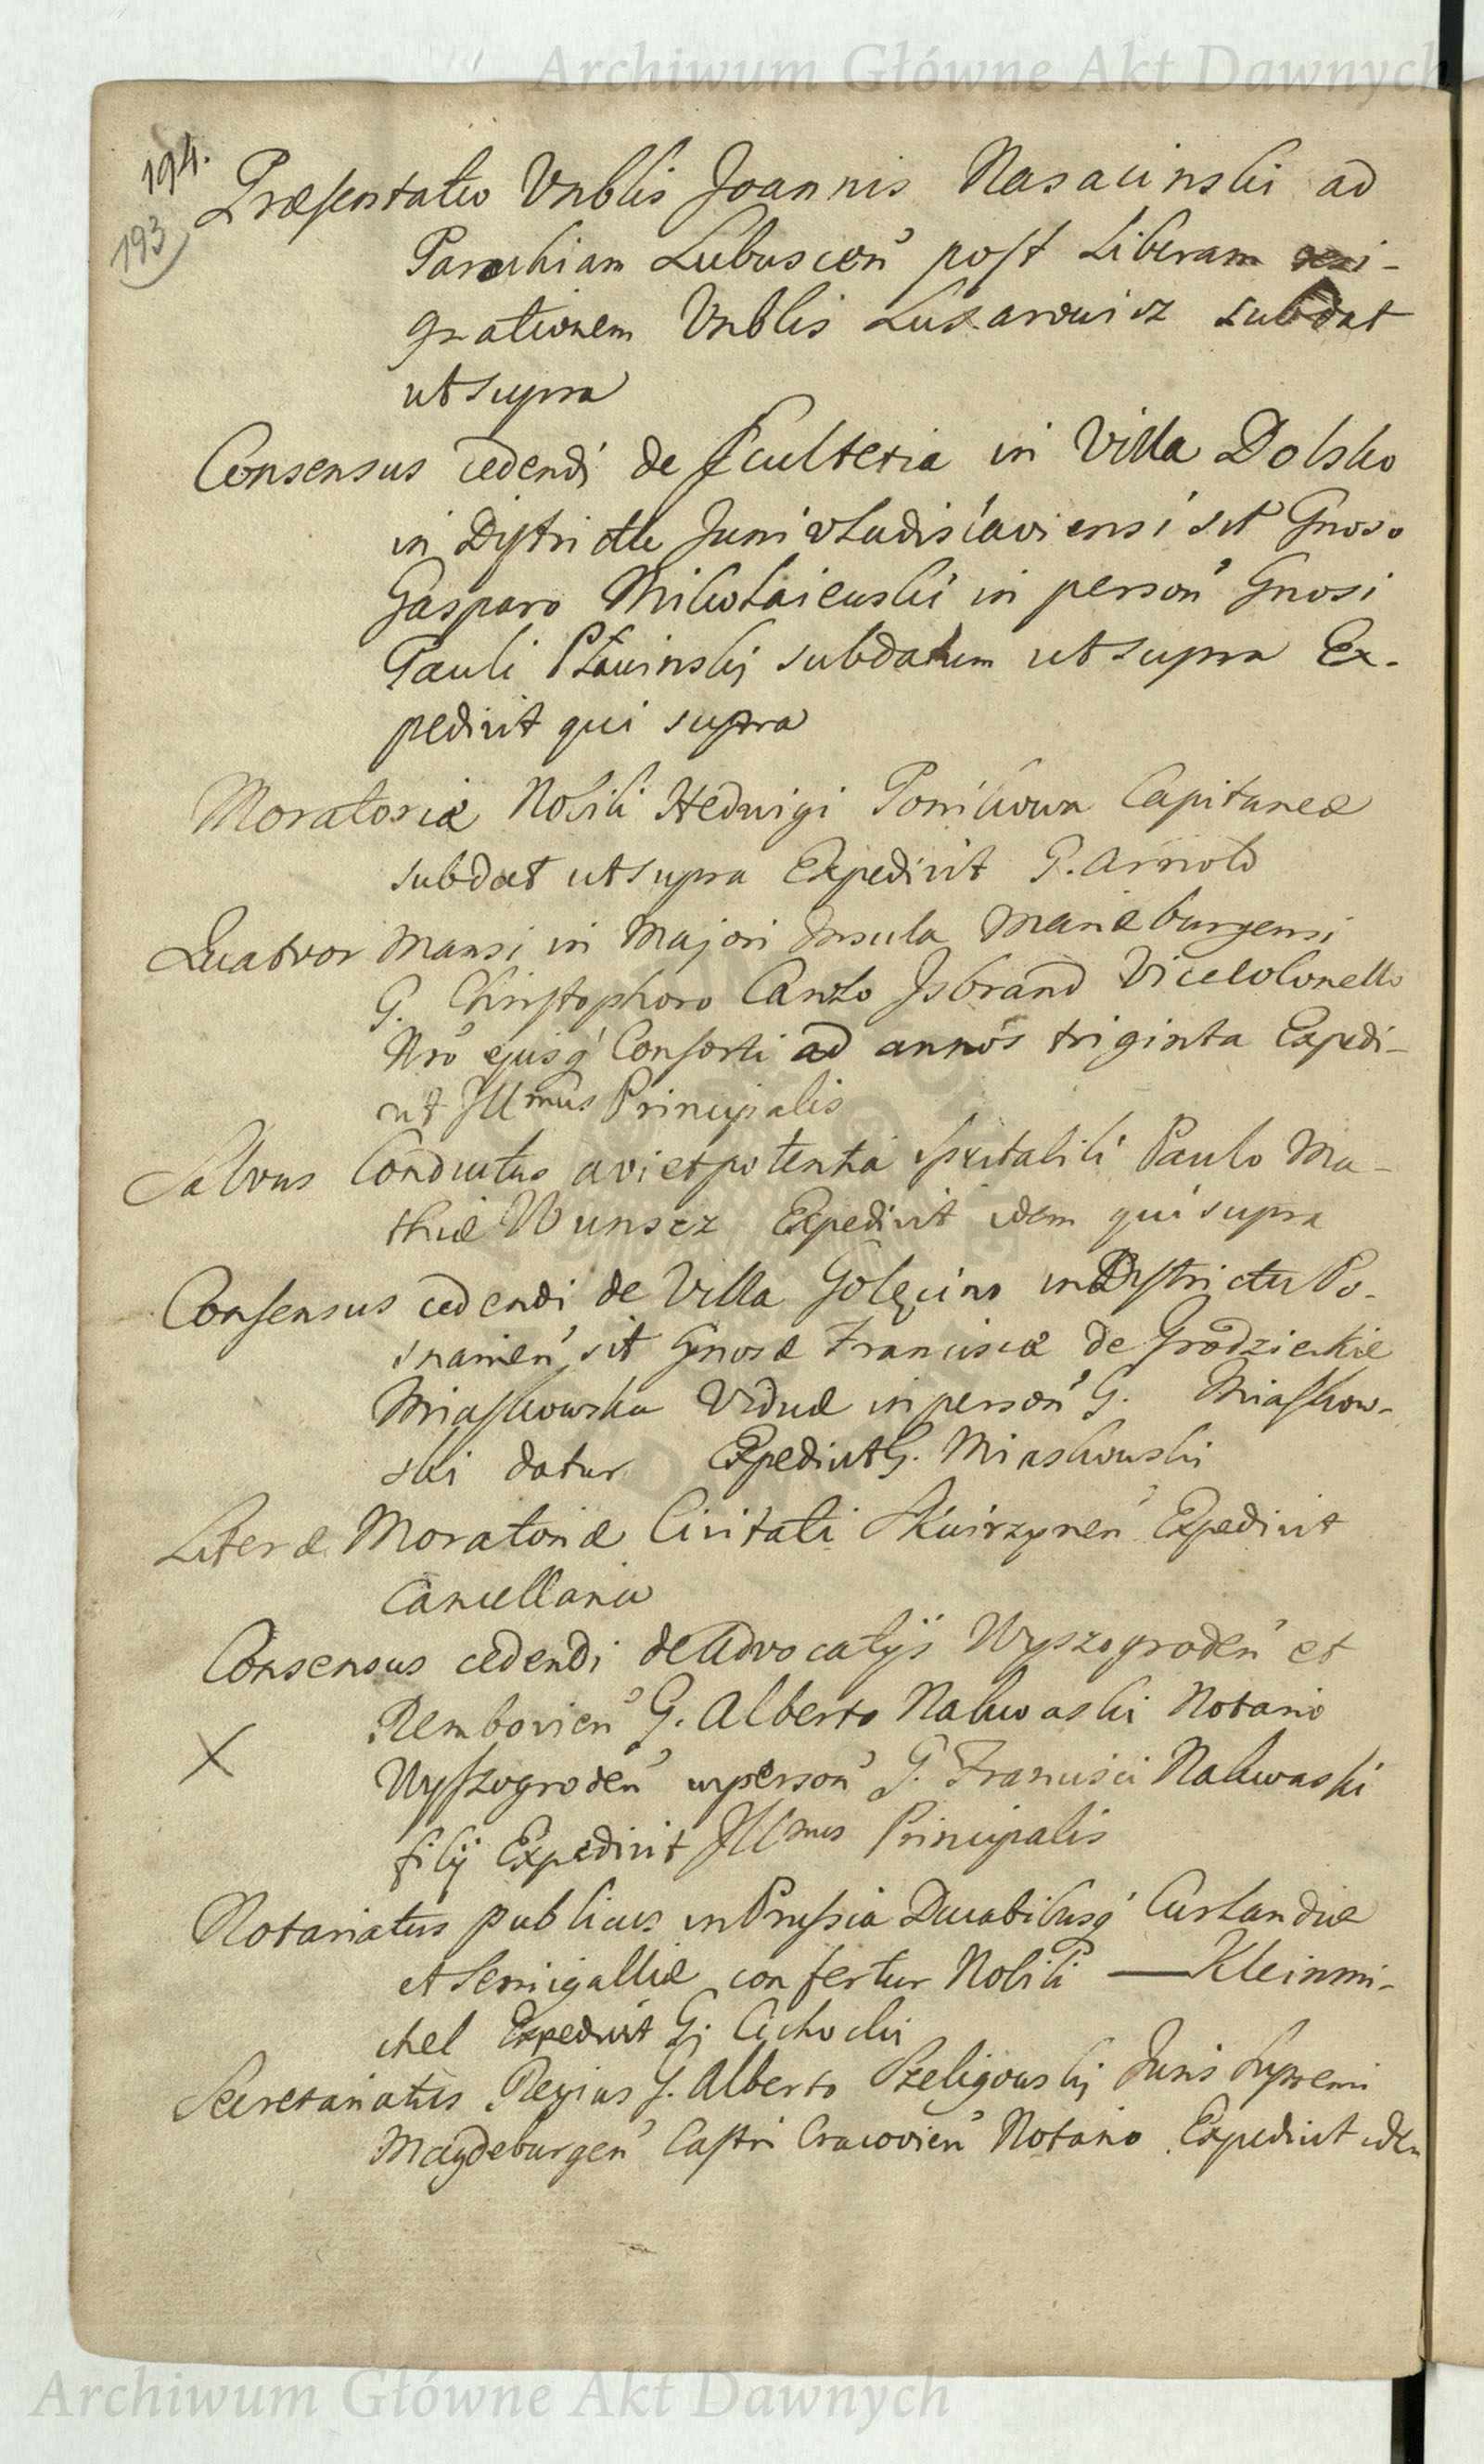 Archiwum Główne Akt Dawnych
194.
193
Præsentatio Vnblis Joannis Nasacinski ad
Parochiam Lubuscen̄ post Liberam resi-
gnationem Vnblis Luxarowicz subdat
ut supra
Consensus cedendi de Scultetia in Villa Dolsko
in Districtu Juniwladislaviensi sit Gnoso
Gasparo Mikołaiewski in person̄ Gnosi
Pauli Pławinskj subdatum ut supra Ex-
pedivit qui supra
Moratoriæ Nobili Hedwigi Ponikowa Capitaneæ
subdat ut supra Expedivit G. Arnold
Quatvor Mansi in Majori Insula Mariæburgensi
G. Christophoro Carolo Isbrand ViceColonello
Nrō ejusq́ Consorti ad annos triginta Expedi-
vit Jllmus Principalis
Salvus Conductus a vi et potentia spectabili Paulo Ma-
thiæ Wunscz Expedivit idem qui supra
Consensus cedendi de Villa Golęcino in Districtu Po-
snanien̄ sit Gnosæ Franciscæ de Grodzieckie
Miaskowska Viduæ in person̄ G. Miaskow-
ski datur Expedivit G. Miaskowski
Literæ Moratoriæ Civitati Skwirzynen̄ Expedivit
Cancellaria
Consensus cedendi de Advocatijs Wyszogroden̄ et
Rembovien̄ G. Alberto Nakwaski Notario
X
Wyszogroden̄ in person̄ G. Francisci Nakwaski
filij Expedivit Jllmus Principalis
Notariatus publicus in Prussia Ducatibusq́ Curlandiæ
et Semigalliæ confertur Nobili — Kleinmi-
chel Expedivit G. Cichocki
Secretariatus Regius G. Alberto Szeligowskj Juris Supremi
Magdeburgen̄ Castri Cracovien̄ Notario Expedivit idem
Archiwum Główne Akt Dawnych